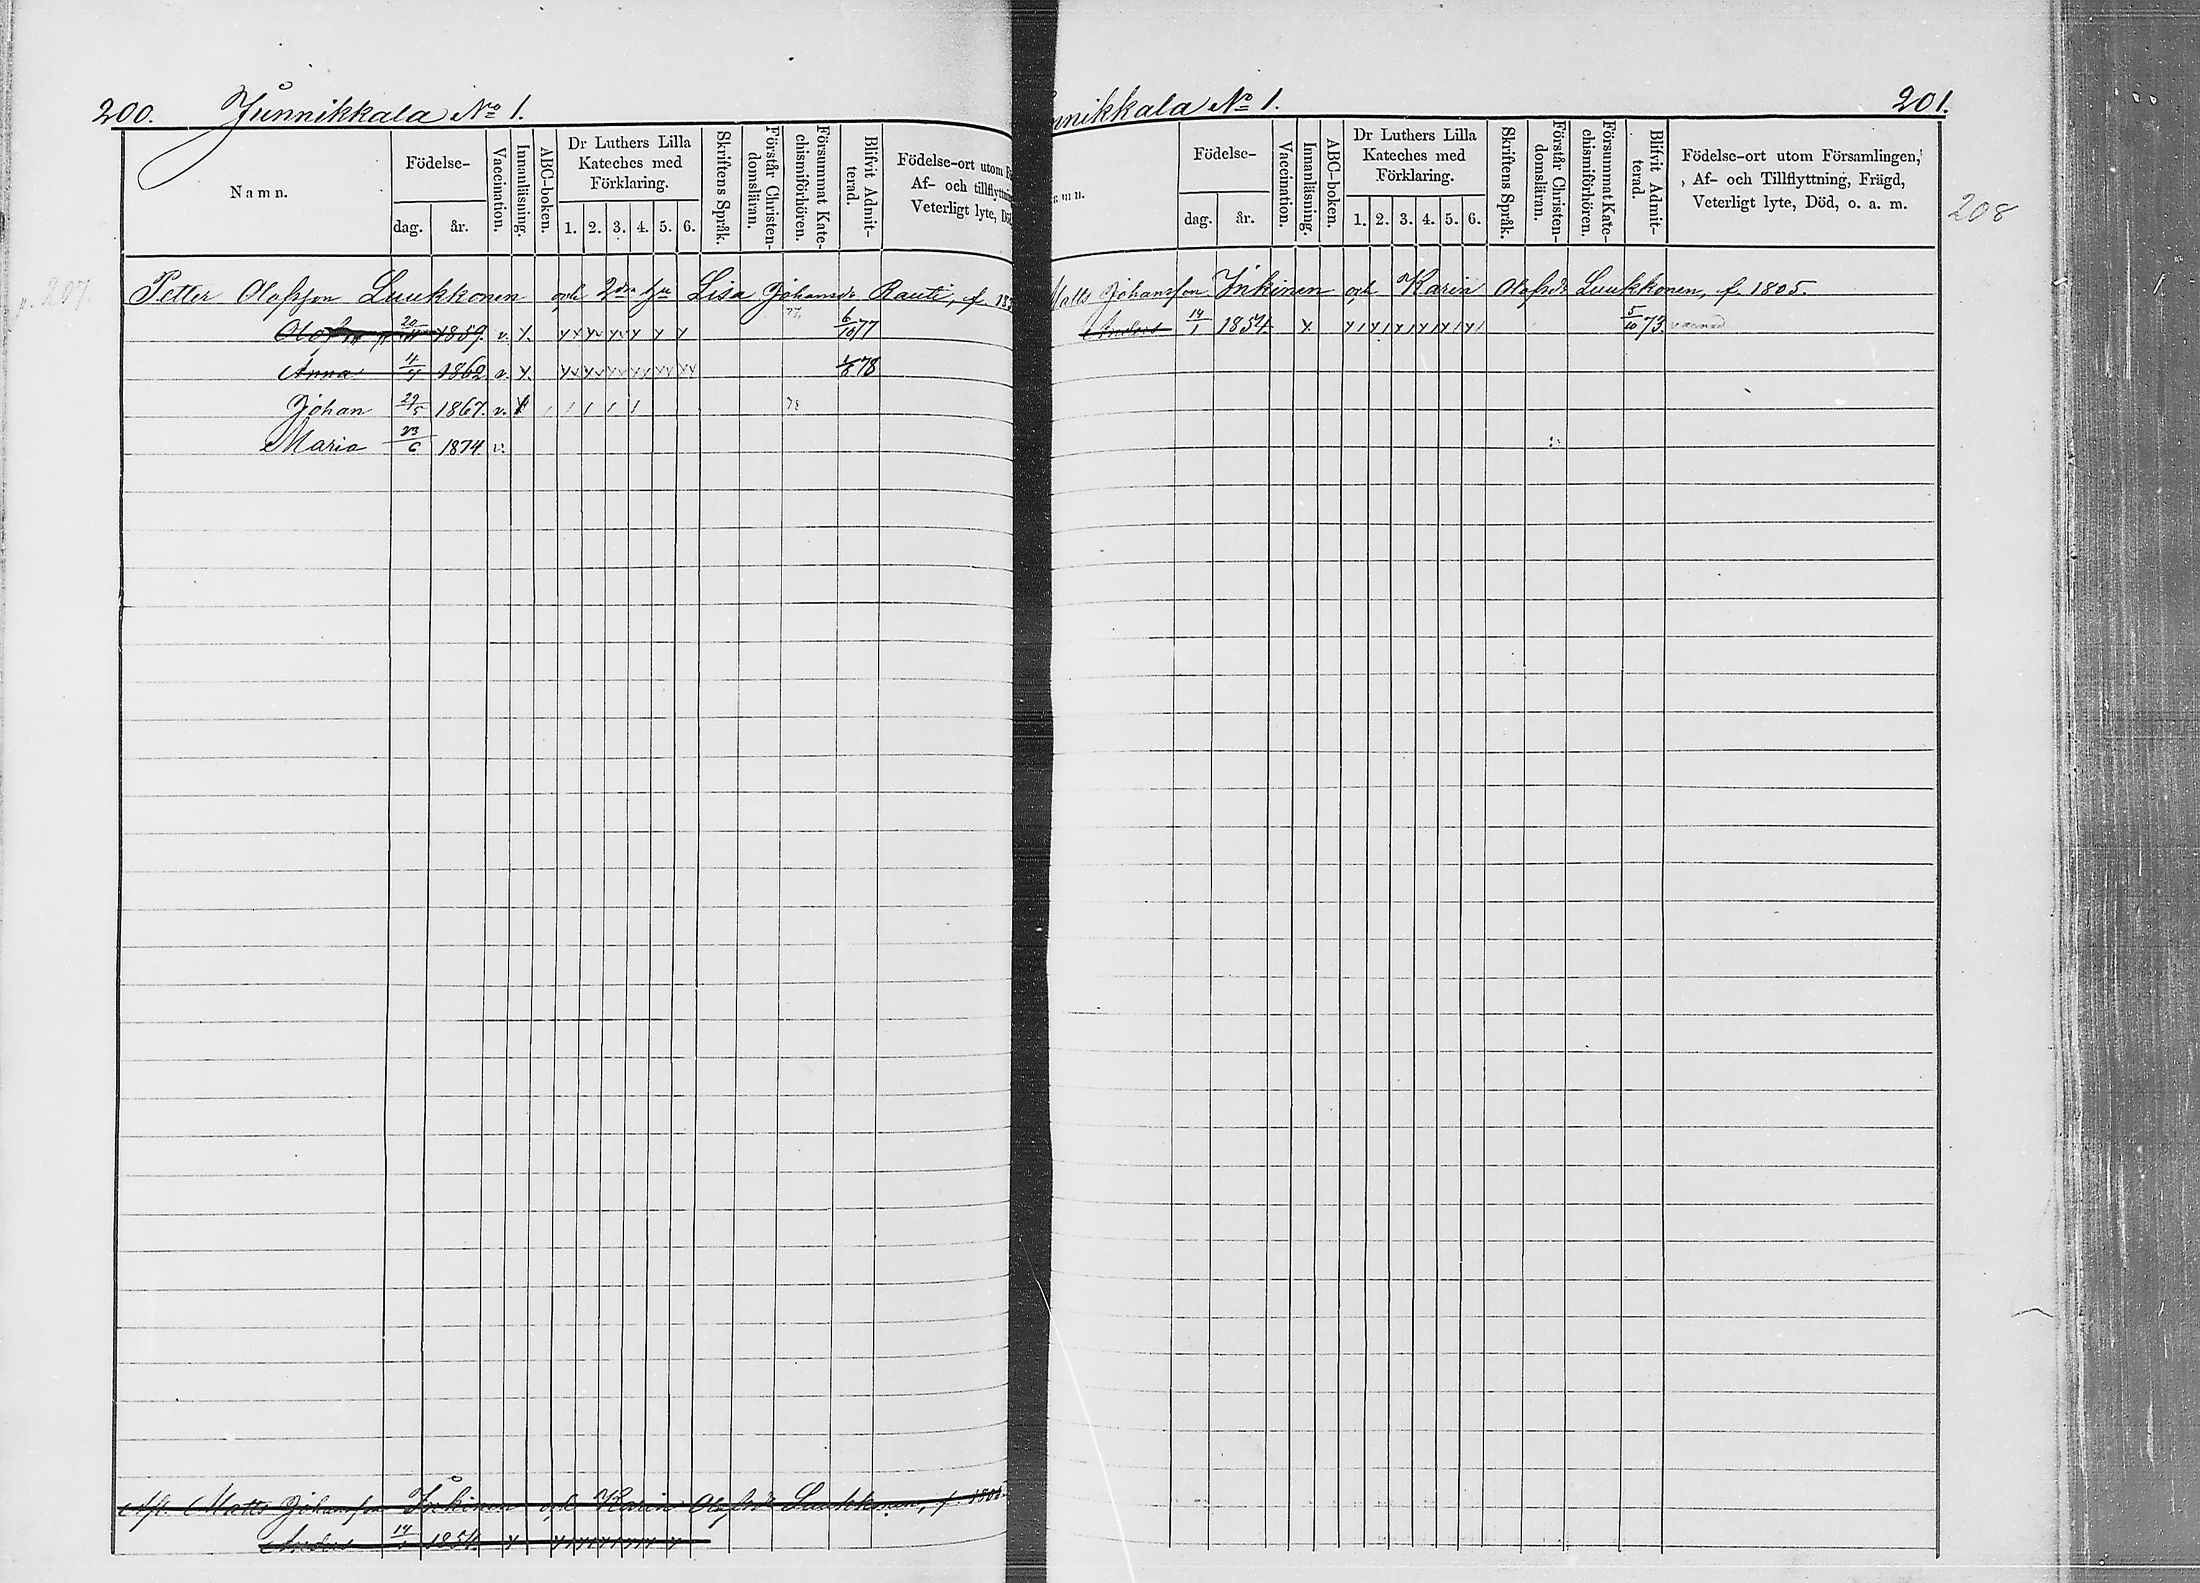 200. Junnikkala No 1.
Namn.
Födelse-
dag. år.
Vaccination.
Innanläsning.
ABC-boken.
Dr Luthers Lilla Kateches med Förklaring.
1. 2. 3. 4. 5. 6.
Skriftens Språk.
Förstår Christen-domsläran.
Försummat Kate-chismiförhören.
Blifvit Admit-terad.
Födelse-ort utom
Af- och tillflyttni
Veterligt lyte, Dö
p. 207.
Petter Olofsson Luukkonen och 2dra hu Lisa Johansdr Rauti, f. 18
Olof 20/11 1859. v. x. 6/10 77
Anna 4/4 1862. v. x. 1/8 78
Johan 29/5 1867. v. x 78
Maria 23/6 1874. v.
Afl. Matts Johansson Inkinen och Karin Olofsdr Luukkonen, f. 1805.
Anders 14/1 1854. x
nnikkala No 1. 201.
mn.
Födelse-
dag. år.
Vaccination.
Innanläsning.
ABC-boken.
Dr Luthers Lilla Kateches med Förklaring.
1. 2. 3. 4. 5. 6.
Skriftens Språk.
Förstår Christen-domsläran.
Försummat Kate-chismiförhören.
Blifvit Admit-terad.
Födelse-ort utom Församlingen,
Af- och Tillflyttning, Frägd,
Veterligt lyte, Död, o. a. m.
208
Matts Johansson Inkinen och Karin Olofsdr Luukkonen, f. 1805.
Anders 14/1 1854. x 5/10 73.